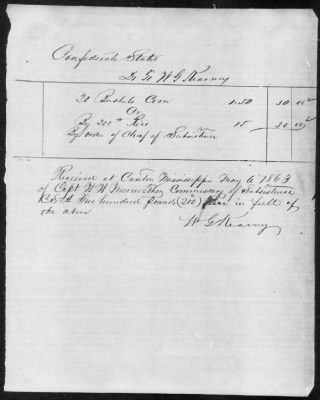 Confederate States
To W G Kearney
20 Bushels Corn 1.50 30 00
Cr
By 200 lb Rice 15 30 00
By order of Chief of Subsistence
Received at Canton Mississippi May 6 1863
of Capt W W Commissary of Subsistence
Two hundred Pounds (200) Rice in full of
the above
W G Kearney